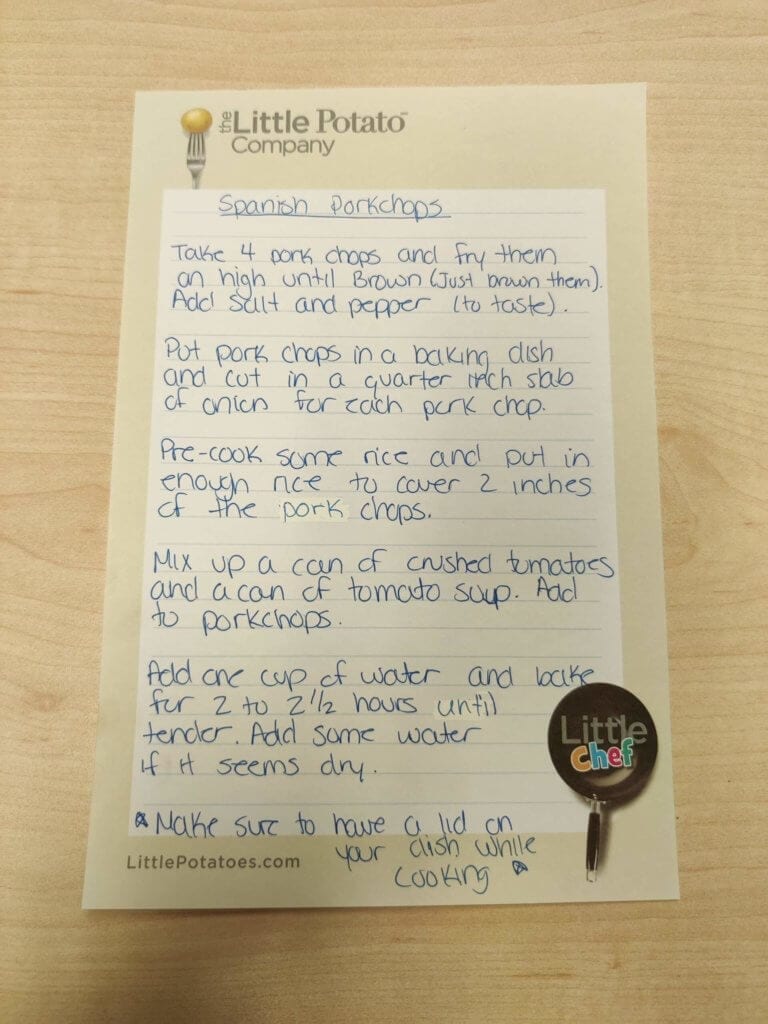 the Little Potato™
Company
Spanish Porkchops
Take 4 pork chops and fry them
on high until Brown (Just brown them).
Add salt and pepper (to taste).
Put pork chops in a baking dish
and cut in a quarter inch slab
of onion for each pork chop.
Pre-cook some rice and put in
enough rice to cover 2 inches
of the pork chops.
Mix up a can of crushed tomatoes
and a can of tomato soup. Add
to porkchops.
Add one cup of water and bake
for 2 to 2 1/2 hours until
tender. Add some water
if it seems dry.
Little
Chef
* Make sure to have a lid on
your dish while
cooking *
LittlePotatoes.com